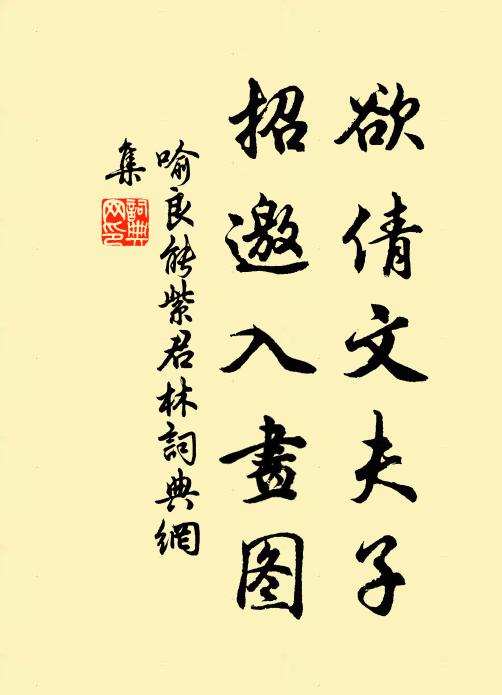 欲倩文夫子
招邀入畫图
喻良能紫君林詞典網
集
詞典網印